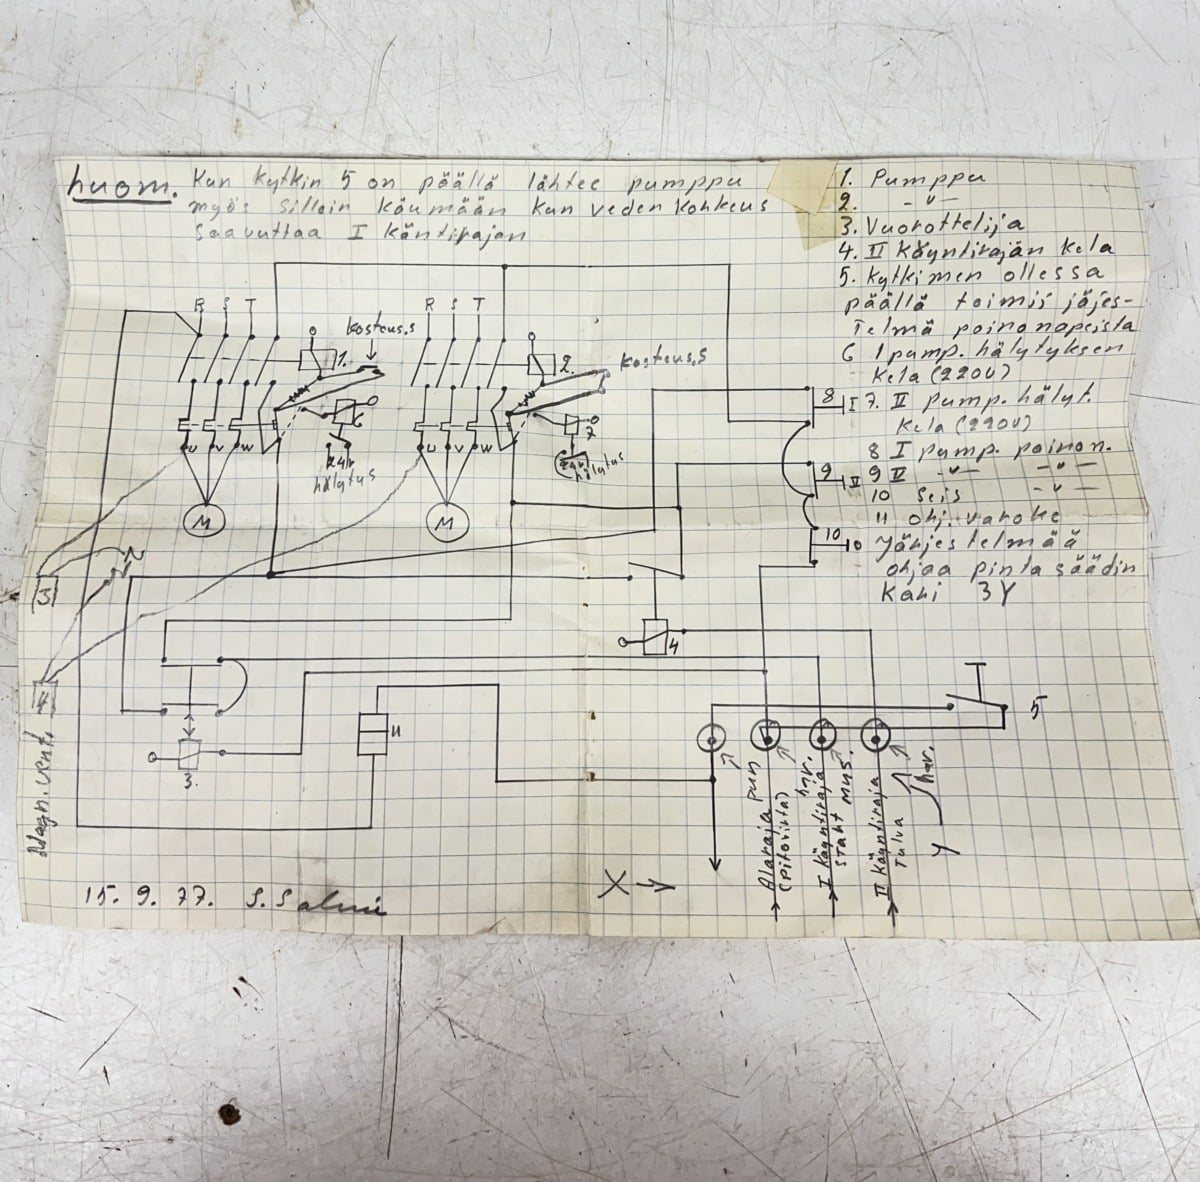 huom. Kun kytkin 5 on päällä lähtee pumppu
myös silloin käymään kun veden korkeus
saavuttaa I käyntirajan
1. Pumppu
2. -"-
3. Vuorottelija
4. II Käyntirajan kela
5. Kytkimen ollessa
päällä toimii jäjes-
telmä poinonapeista
6 1 pump. hälytyksen
kela (220V)
7. II pump. hälyt.
kela (220V)
8 I pump. poinon.
9 II -"- -"-
10 Seis -"-
11 ohj. varoke
Järjestelmää
ohjaa pintasäädin
Kari 3Y
R S T
R S T
kosteus.s
kosteus.s
1.
2.
6
7
U V W
U V W
hälytus
hälytus
M
M
8 I
9 II
10 0
3
4
4
3.
11
5
Magn. vent.
pun
har.
mus.
har.
Alaraja
(pitovirta)
I Käyntiraja
start
II Käyntiraja
Tulva
X
Y
15. 9. 77. S. Salmi